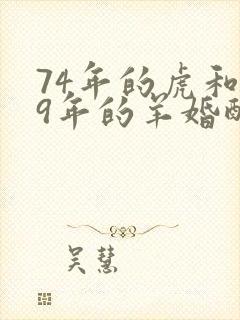 74年的虎和
9年的羊婚配
吴慧